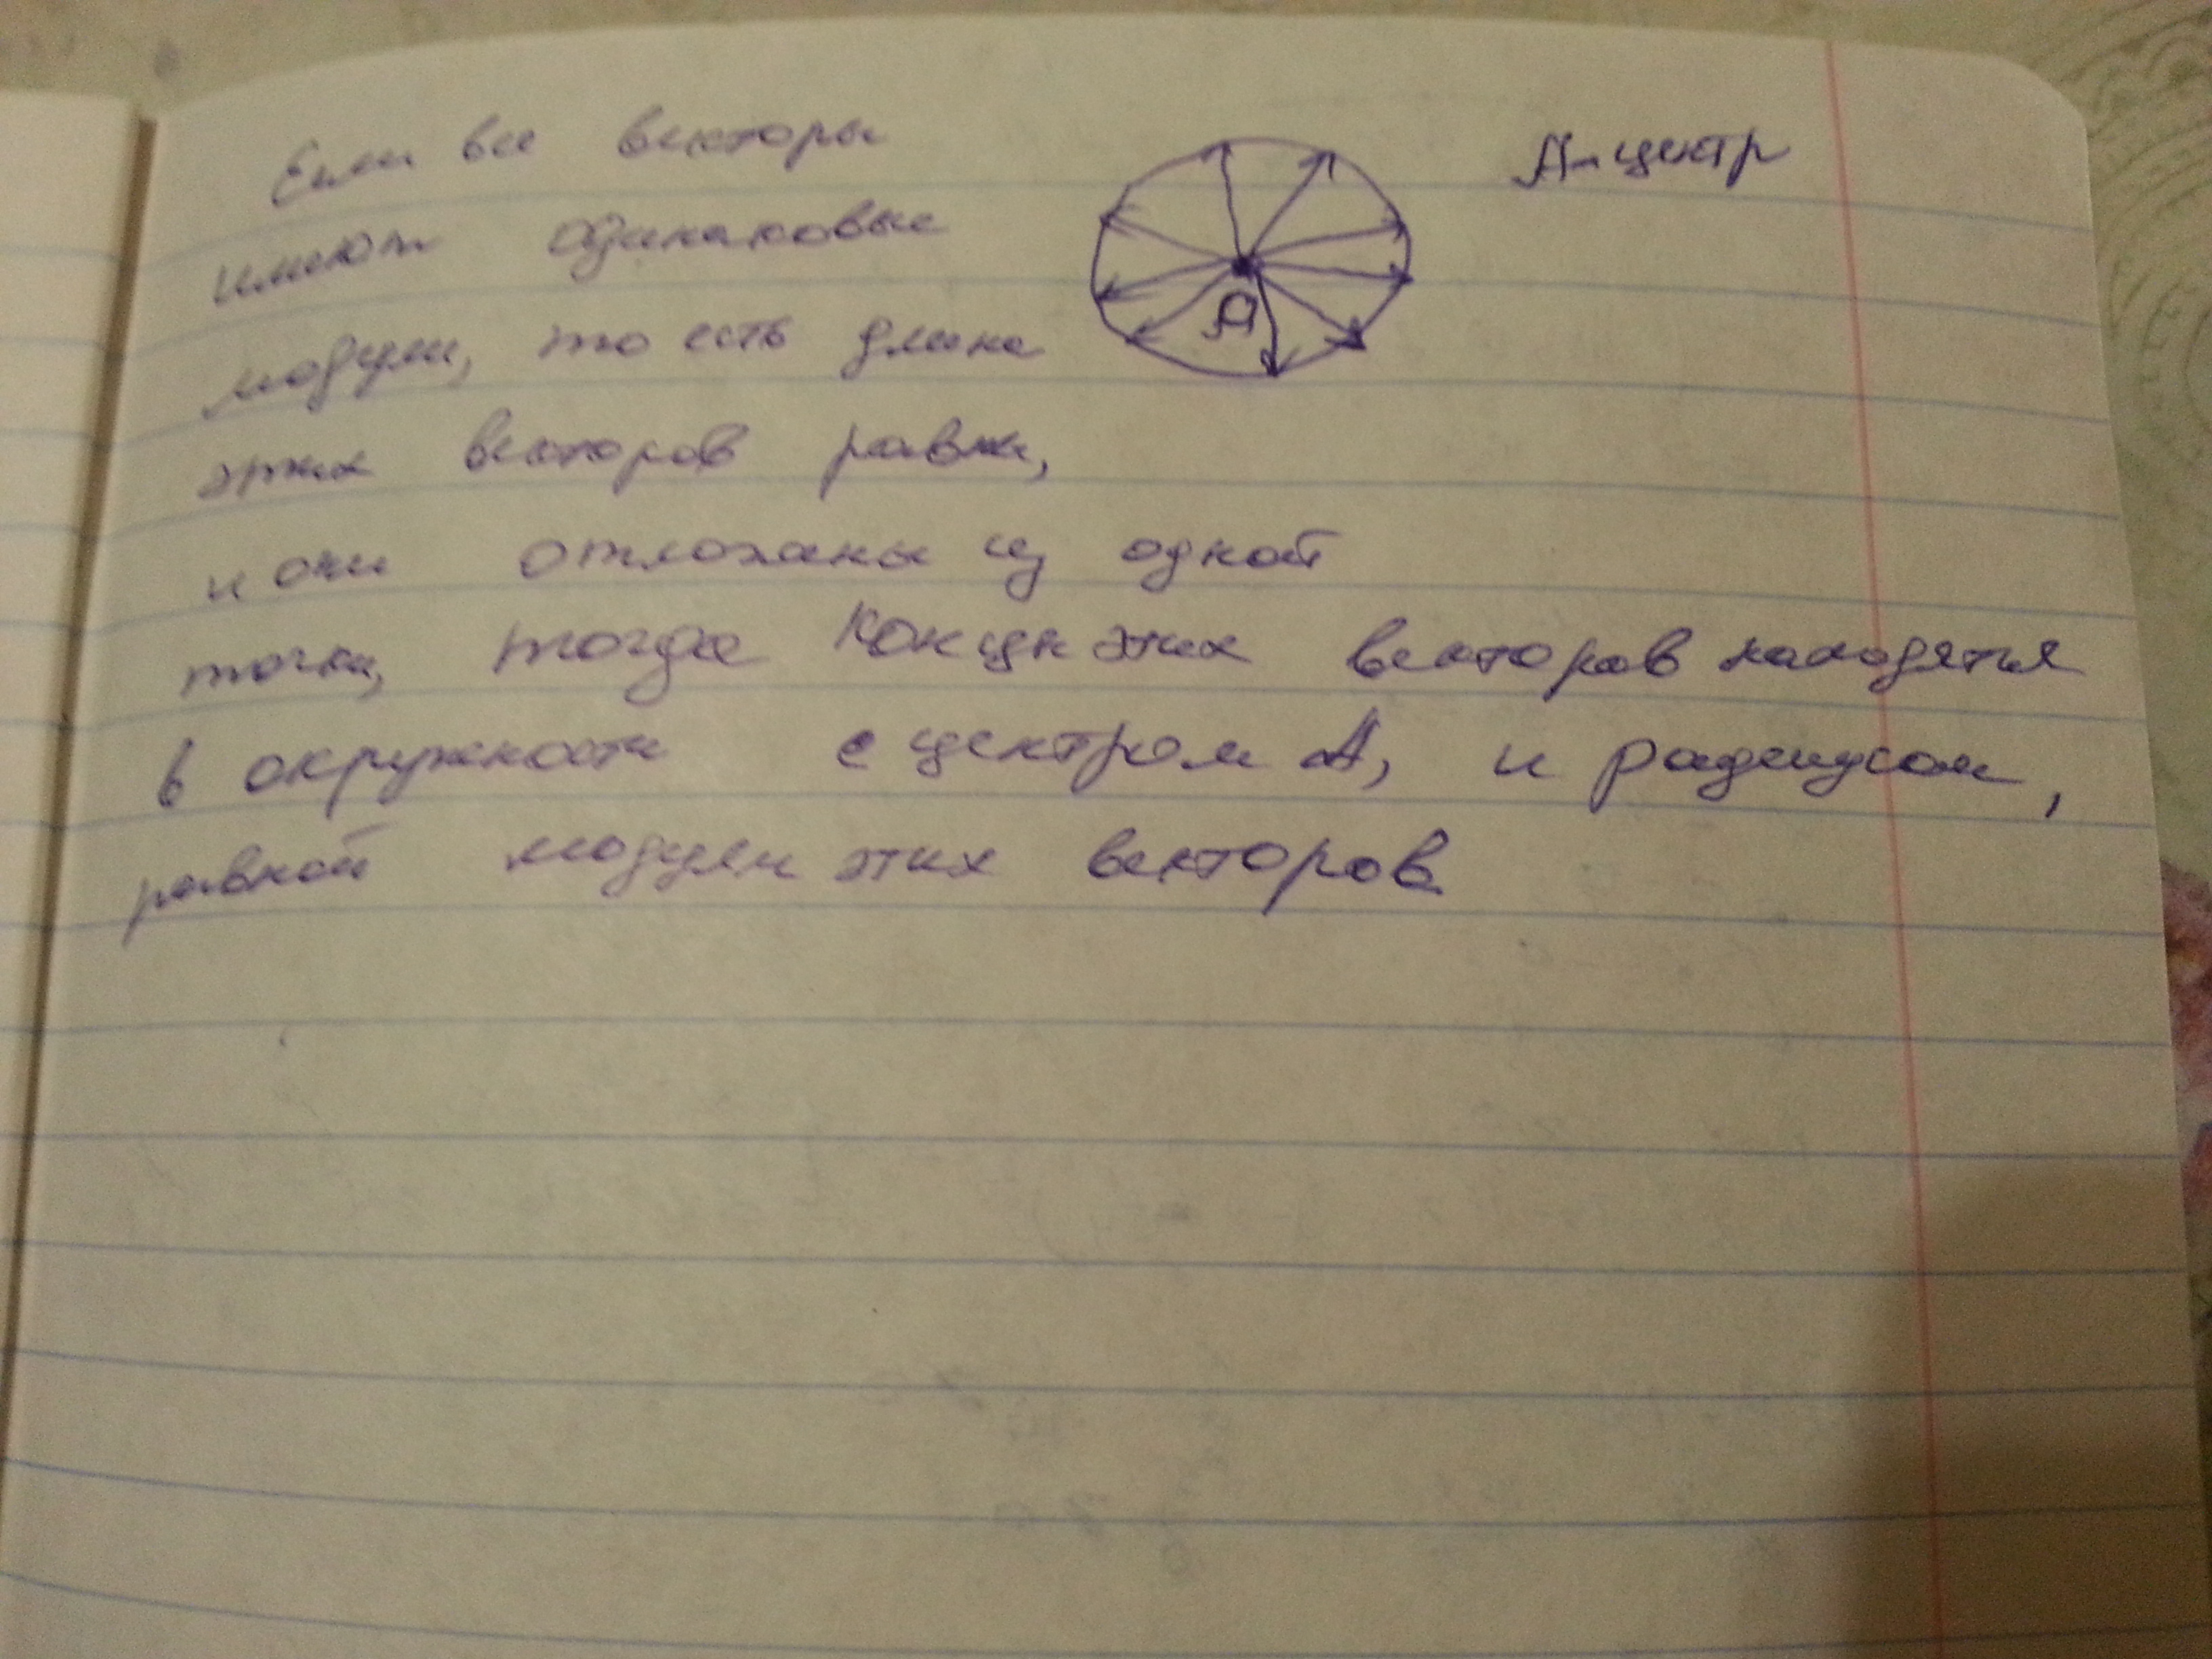 Если все векторы
А-центр
имеют одинаковые
А
модули, то есть длина
этих векторов равны,
и они отложены из одной
точки, тогда концы этих векторов находятся
в окружности с центром А, и радиусом,
равной модули этих векторов